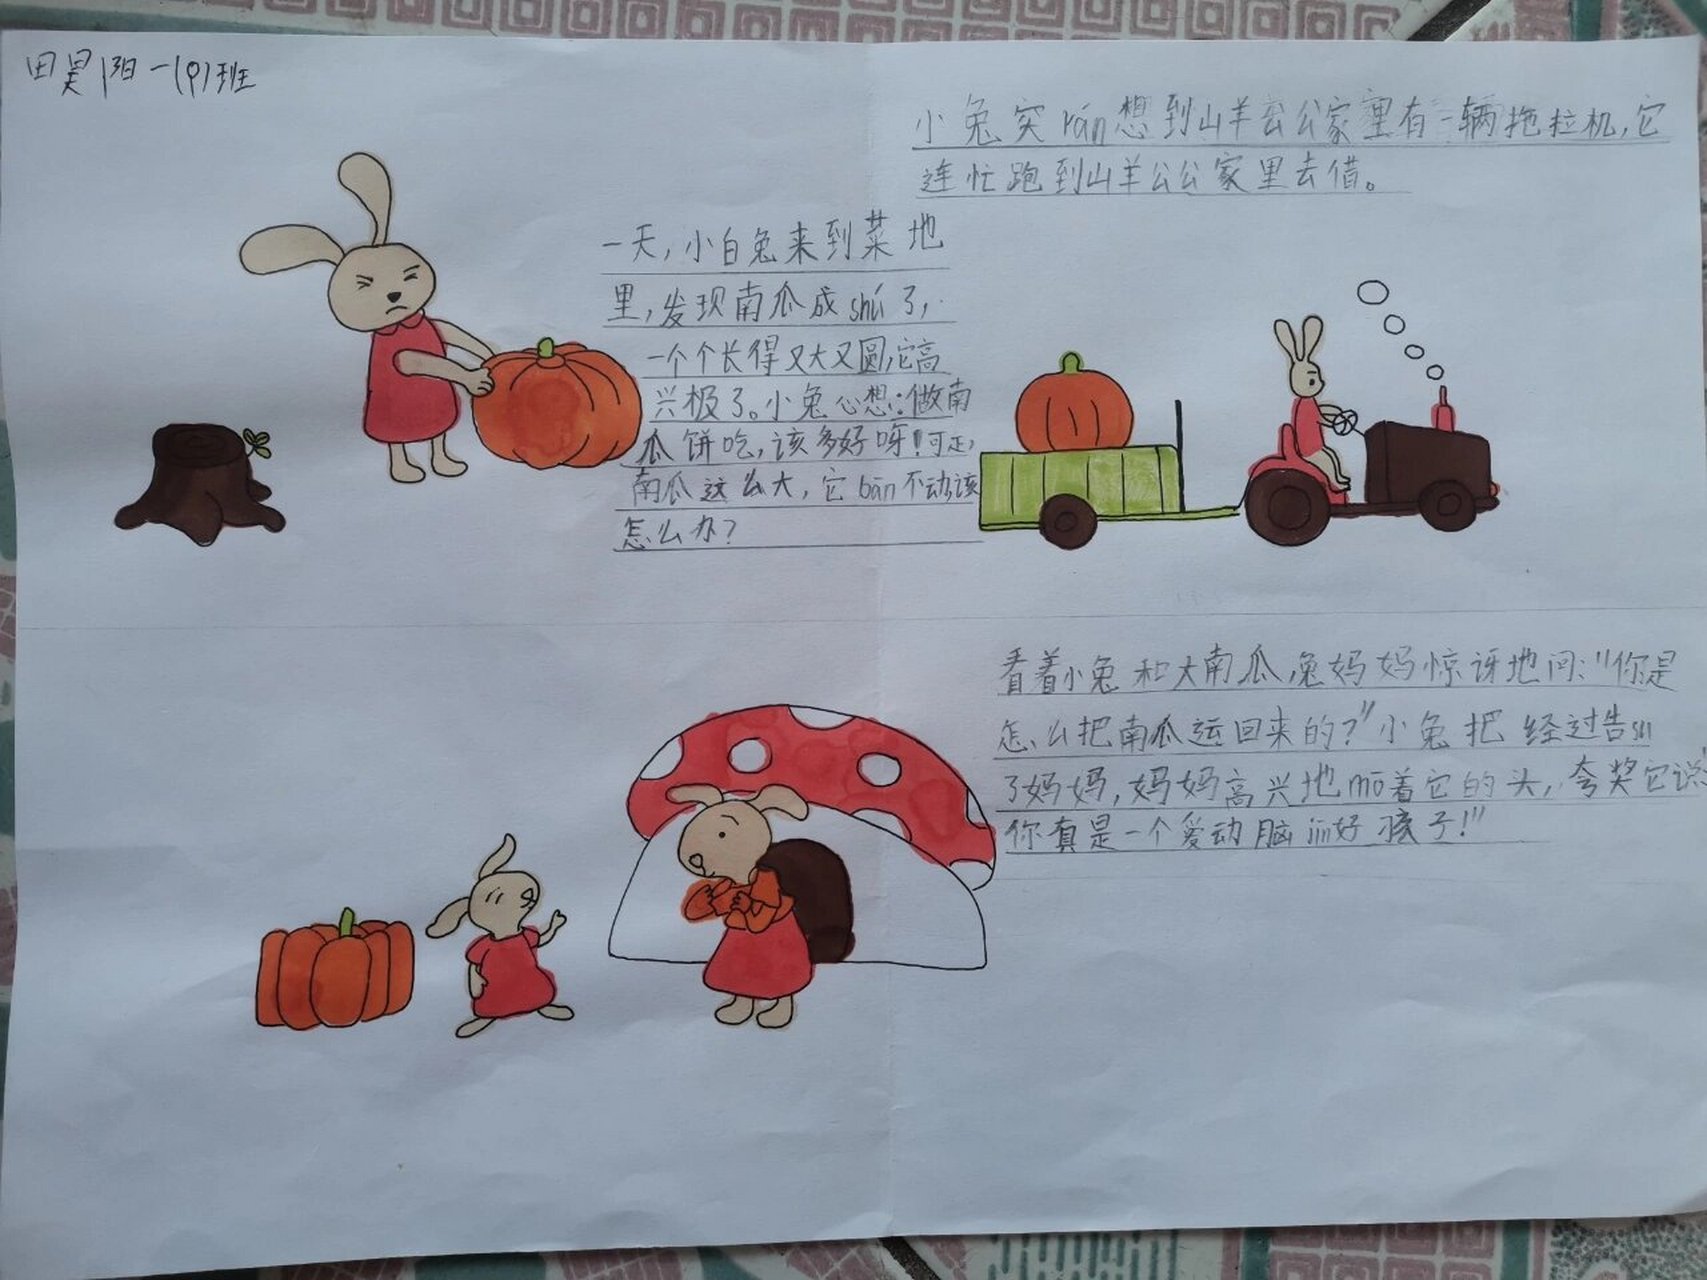 田昊阳一(9)班
一天，小白兔来到菜地
里，发现南瓜成shú了，
一个个长得又大又圆，它高
兴极了。小兔心想：做南
瓜饼吃，该多好呀！可是，
南瓜这么大，它bān不动该
怎么办？
小兔突rán想到山羊公公家里有一辆拖拉机，它
连忙跑到山羊公公家里去借。
看着小兔和大南瓜，兔妈妈惊讶地问：“你是
怎么把南瓜运回来的？”小兔把经过告su
了妈妈，妈妈高兴地mō着它的头，夸奖它说
你真是一个爱动脑jin好孩子！”